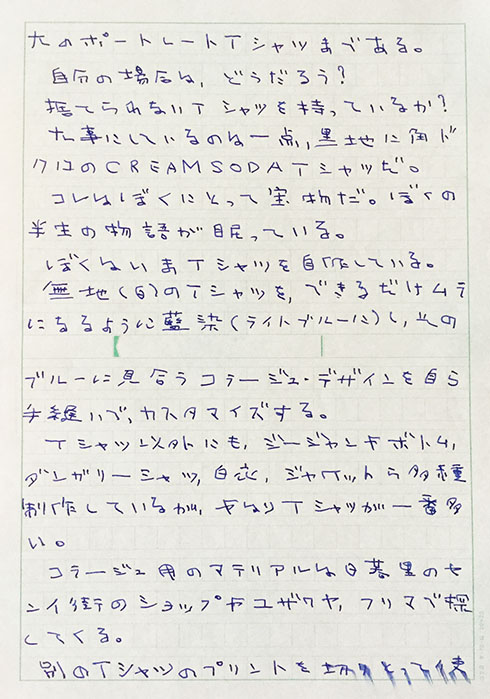 大のポートレートTシャツまである。
自分の場合は、どうだろう?
捨てられないTシャツを持っているか?
大事にしているのは一点、黒地に角ド
クロのCREAMSODATシャツだ。
コレはぼくにとって宝物だ。ぼくの
半生の物語が眠っている。
ぼくはいまTシャツを自作している。
無地(白)のTシャツを、できるだけムラ
になるように藍染(ライトブルーに)し、その
ブルーに見合うコラージュ・デザインを自ら
手縫いで、カスタマイズする。
Tシャツ以外にも、ジージャンやボトム、
ダンガリーシャツ、白衣、ジャケットら多種
制作しているが、やはりTシャツが一番多
い。
コラージュ用のマテリアルは日暮里のセ
ンイ街のショップやユザワヤ、フリマで探
してくる。
別のTシャツのプリントを切りとって使